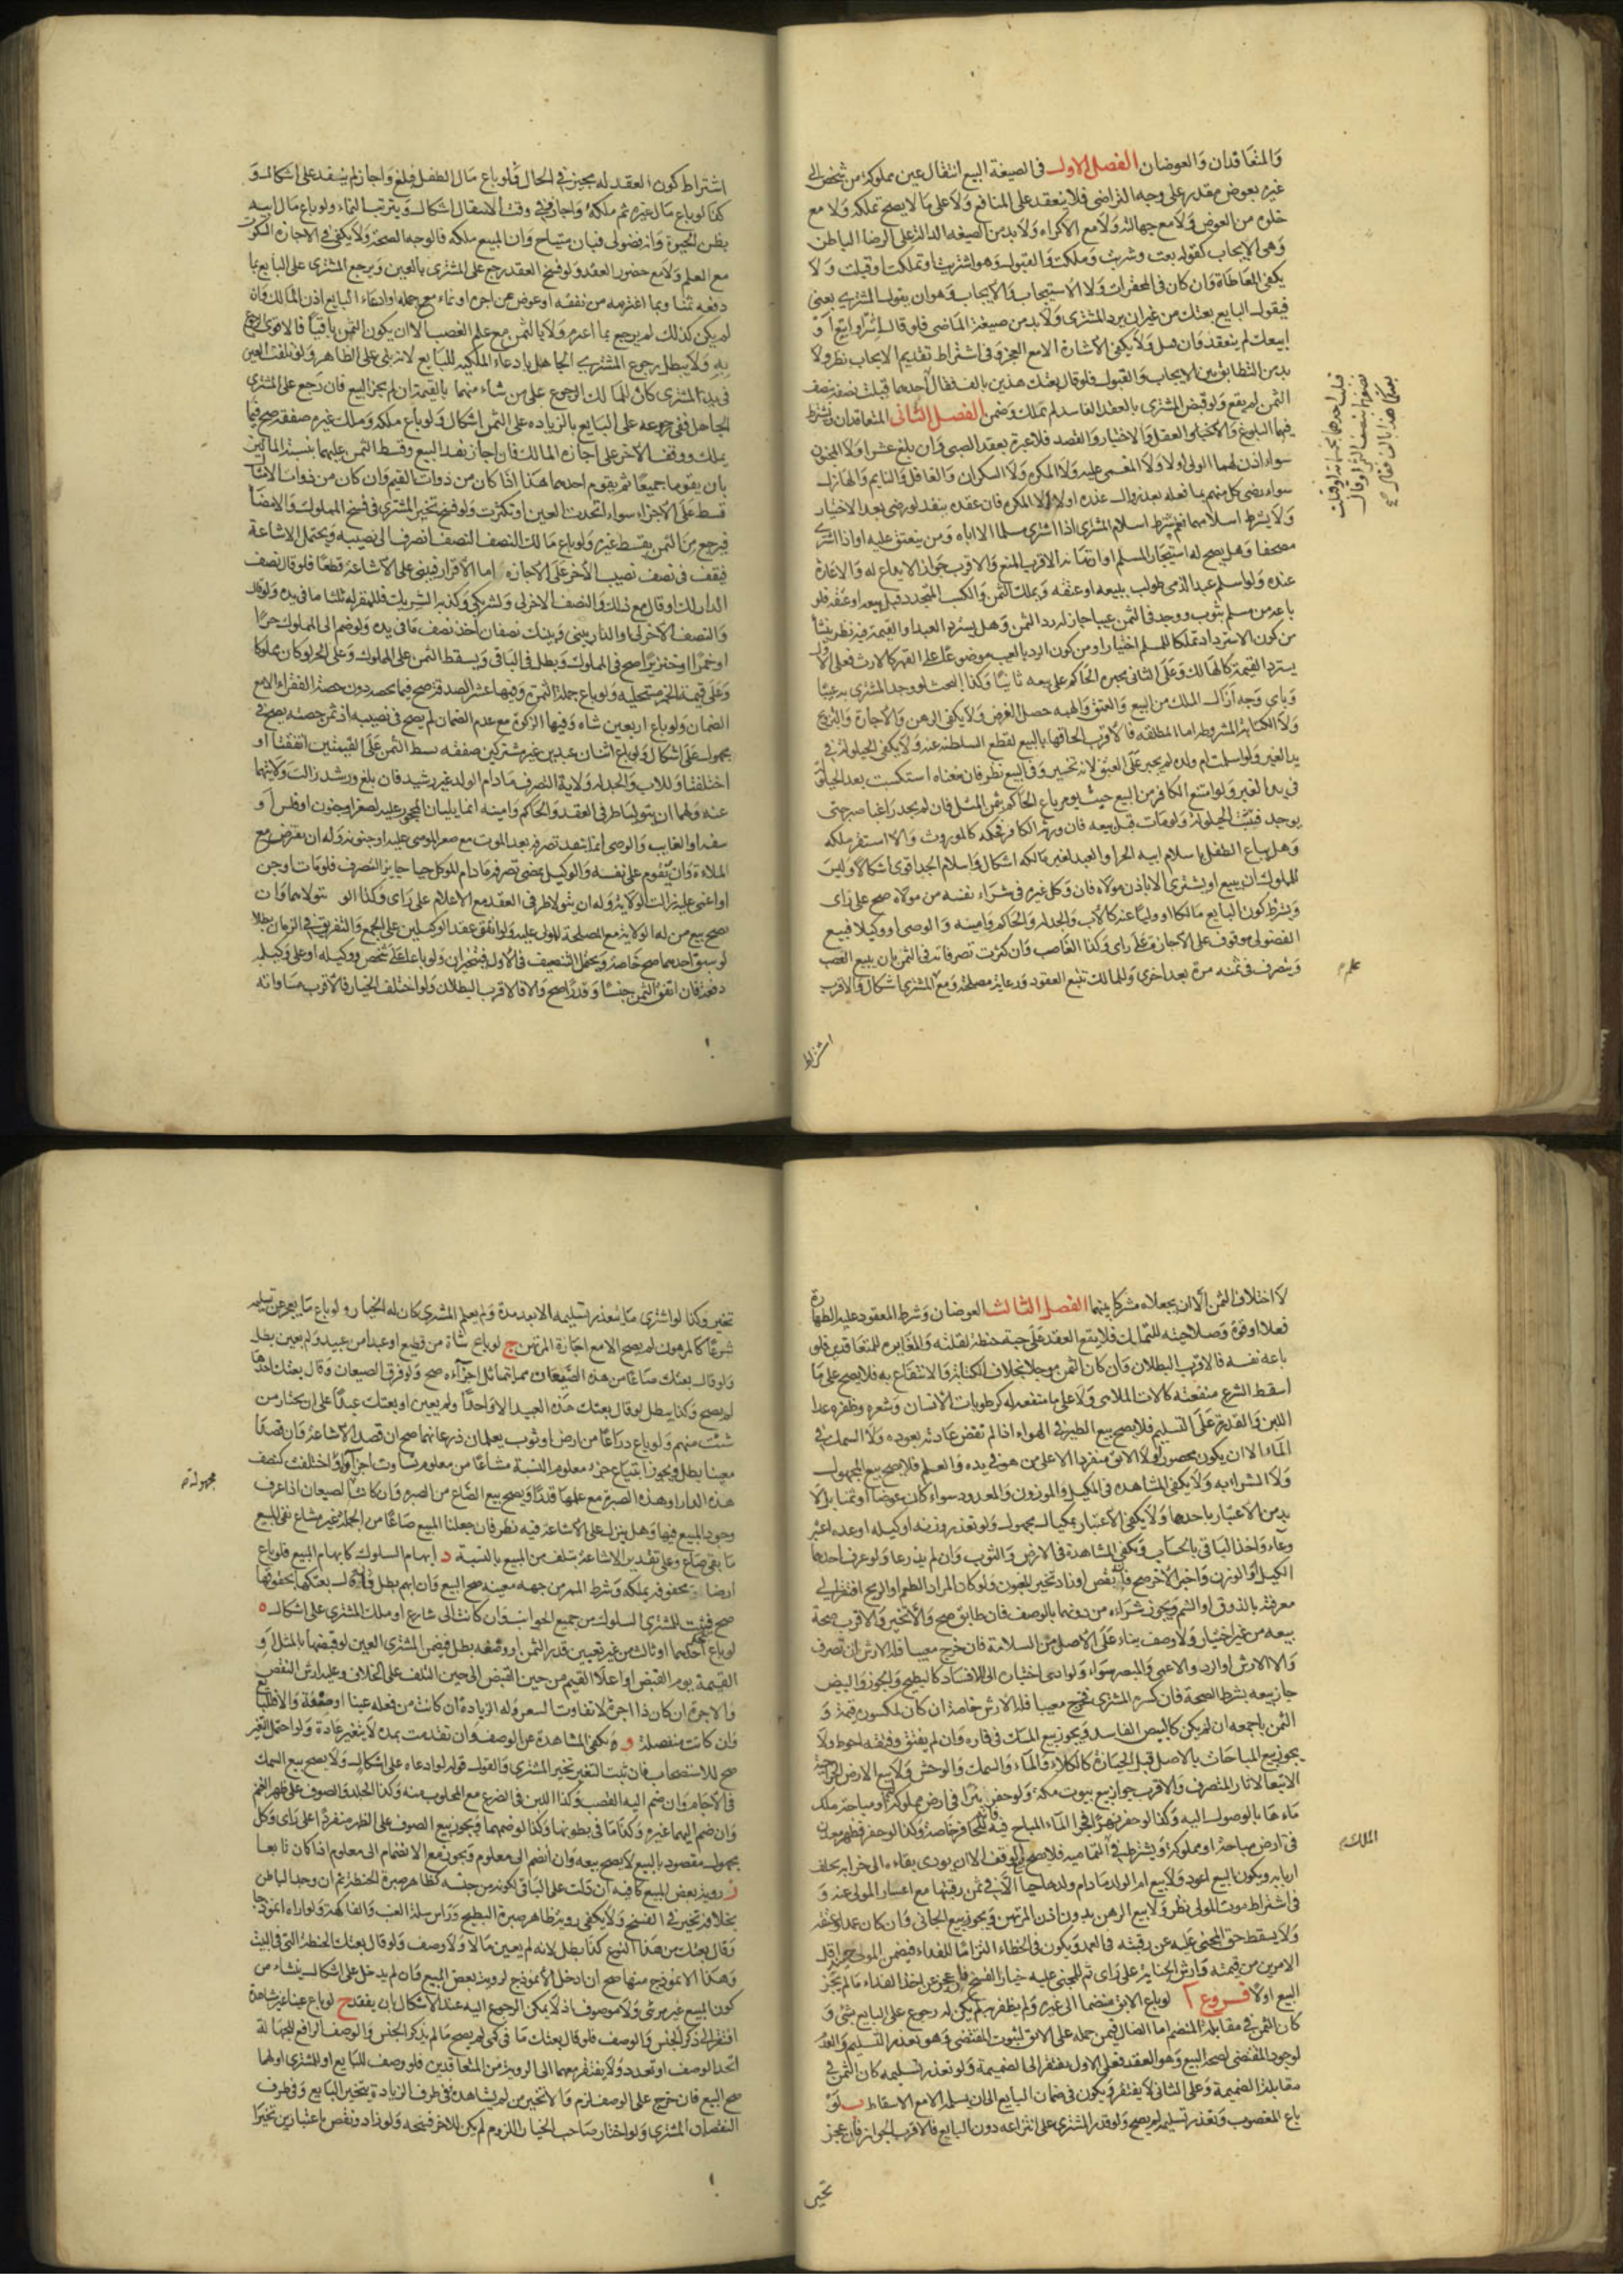 والمتعاقدان والعوضان الفصل الاول فى الصيغة البيع انتقال عين مملوكة من شخص الى
غيره بعوض مقدر على وجه التراضى فلا ينعقد على المنافع ولا على ما لا يصح تملكه ولا مع
خلوه من العوض ولا مع جهالته ولا مع الاكراه ولا بد من الصيغه الدالة على الرضا الباطن
وهى الايجاب كقوله بعت وشريت وملكت والقبول وهو اشتريت او تملكت او قبلت ولا
يكفى المعاطاة وان كان فى المحقرات ولا الاستيجاب والايجاب وهو ان يقول المشترى بعنى
فيقول البايع بعتك من غير ان يرد المشترى ولا بد من صيغة الماضى فلو قال اشتر او ابتع او
ابيعك لم ينعقد وان قبل ولا يكفى الاشارة الا مع العجز وفى اشتراط تقديم الايجاب نظر ولا
بد من التطابق بين الايجاب والقبول فلو قال بعتك هذين بالف فقال احدهما قبلت نصفه بنصف
الثمن لم يقع ولو قبض المشترى بالعقد الفاسد لم يملك وضمن الفصل الثانى المتعاقدان ويشترط
فيهما البلوغ والعقل والاختيار والقصد فلا عبرة بعقد الصبى وان بلغ عشرا ولا المجنون
سواء اذن لهما الولى اولا ولا المغمى عليه ولا المكره ولا السكران والغافل والنايم والهازل
سواء رضى كل منهم بما فعله بعد زوال عذره اولا الا المكره فان عقده ينفذ لو رضى بعد الاختيار
ولا يشترط اسلامهما نعم يشترط اسلام المشترى اذا اشترى مسلما الا اباه ومن ينعتق عليه او اذا اشترى
مصحفا وهل يصح له استيجار المسلم او ارتهانه الاقرب المنع والاقرب جواز الايداع له والاعارة
عنده ولو اسلم عبد الذمى طولب ببيعه او عتقه ويملك الثمن والكسب المتجدد قبل بيعه او عتقه فلو
باعه من مسلم بثوب ووجد فى الثمن عيبا جاز له رد الثمن وهل يسترد العبد او القيمة فيه نظر ينشأ
من كون الاسترداد تملكا للمسلم اختيارا ومن كون الرد بالعيب موضوعا على القهر كالارث فعلى الاول
يسترد القيمة كالهالك وعلى الثانى يجبره الحاكم على بيعه ثانيا وكذا البحث لو وجد المشترى به عيبا
وباى وجه ازال الملك من البيع والعتق والهبه حصل الغرض ولا يكفى الرهن والاجارة والتزويج
ولا الكتابة المشروطه اما المطلقه فالاقرب الحاقها بالبيع لقطع السلطنه عنه ولا يكفى الحيلولة فى
يد الغير ولو اسلمت ام ولده لم يجبر على العتق لانه تخسير وفى البيع نظر فان منعناه استكسبت بعد الحيلولة
فى يد الغير ولو امتنع الكافر من البيع حيث يؤمر باع الحاكم بثمن المثل فان لم يجد راغبا صبر حتى
يوجد فيثبت الحيلولة ولو مات قبل بيعه فان ورثه الكافر فحكمه كالموروث والا استقر ملكه
وهل يباع الطفل باسلام ابيه الحر او العبد لغير مالكه اشكال واسلام الجد اقوى اشكالا وليس
للمملوك ان يبيع او يشترى الا باذن مولاه فان وكل غيره فى شراء نفسه من مولاه صح على راى
ويشترط كون البايع مالكا او وليا عنه كالاب والجد له والحاكم وامينه والوصى او وكيلا فبيع
الفضولى موقوف على الاجازة على راى وكذا الغاصب وان كثرت تصرفاته فى الثمن بان يبيع الغصب
ويتصرف فى ثمنه مرة بعد اخرى وللمالك تتبع العقود ورعاية مصلحته ومع المشترى اشكال والاقرب
علم
اشتراط
اشتراط كون العقد له مجيز فى الحال فلو باع مال الطفل فبلغ واجاز لم ينفذ على اشكال و
كذا لو باع مال غيره ثم ملكه واجاز وفى وقت الانتقال اشكال ويترتب النماء ولو باع مال ابيه
بظن الحيوة وانه فضولى فبان ميتا ح وان المبيع ملكه فالوجه الصحة ولا يكفى فى الاجازه السكوت
مع العلم ولا مع حضور العقد ولو فسخ العقد رجع على المشترى بالعين ويرجع المشترى على البايع بما
دفعه ثمنا وبما اغترمه من نفقه او عوض عن اجره او نماء مع جهله او ادعاء البايع اذن المالك وان
لم يكن كذلك لم يرجع بما اغترم ولا بالثمن مع علم الغصب الا ان يكون الثمن باقيا فالاقوى الرجوع
به ولا يبطل رجوع المشترى الجاهل بادعاء الملكيه للبايع لانه بنى على الظاهر ولو تلفت العين
فى يد المشترى كان للمالك الرجوع على من شاء منهما بالقيمة ان لم يجز البيع فان رجع على المشترى
الجاهل ففى رجوعه على البايع بالزياده على الثمن اشكال ولو باع ملكه وملك غيره صفقة صح فيما
يملك ووقف الاخر على اجازه المالك فان اجاز نفذ البيع وقسط الثمن عليهما بنسبة المالين
بان يقوما جميعا ثم يقوم احدهما هذا اذا كان من ذوات القيم وان كان من ذوات الامثال
قسط على الاجزاء سواء اتحدت العين او تكثرت ولو فسخ تخير المشترى فى فسخ المملوك والامضاء
فيرجع من الثمن بقسط غيره ولو باع مالك النصف النصف انصرف الى نصيبه ويحتمل الاشاعة
فيقف فى نصف نصيب الاخر على الاجازه اما الاقرار فيبنى على الاشاعة قطعا فلو قال نصف
الدار لك او قال مع ذلك والنصف الاخر لى ولشريكى وكذبه الشريك فللمقر له ثلثا ما فى يده ولو قال
والنصف الاخر لى او الدار بينى وبينك نصفان اخذ نصف ما فى يده ولو ضم الى المملوك حرا
او خمرا او خنزيرا صح فى المملوك وبطل فى الباقى ويسقط الثمن على المملوك وعلى الحر لو كان مملوكا
وعلى قيمة الخمر مستحليه ولو باع جملة الثمرة وفيها عشر الصدقة صح فيما يخصه دون حصة الفقراء الا مع
الضمان ولو باع اربعين شاه وفيها الزكوة مع عدم الضمان لم يصح فى نصيبه اذ ثمن حصته
مجهول على اشكال ولو باع اثنان عبدين غير مشتركين صفقه بسط الثمن على القيمتين اتفقتا او
اختلفتا وللاب والجد له ولاية التصرف ما دام الولد غير رشيد فان بلغ ورشد زالت ولايتهما
عنه ولهما ان يتوليا طرفى العقد والحاكم وامينه انما يليان المحجور عليه لصغر او جنون او فلس او
سفه او الغايب والوصى انما ينفذ تصرفه بعد الموت مع صغر الموصى عليه او جنونه وله ان يقترض مع
الملاءة وان يقوم على نفسه والوكيل يمضى تصرفه ما دام الموكل حيا جايز التصرف فلو مات او جن
او اغمى عليه زالت الولاية وله ان يتولى طرفى العقد مع الاعلام على راى وكذا الو يتولاهما وان
يصح بيع من له الولاية مع المصلحة للمولى عليه ولو اتفق عقدا الوكيلين على الجمع والتفريق فى الزمان بطلا
لو سبق احدهما صح خاصة ويحتمل التنصيف فى الاول فيتخيران ولو باعا على شخص ووكيله او على وكيليه
دفعة فان اتفق الثمن جنسا وقدرا صح والا فالاقرب البطلان ولو اختلف الخيار فالاقرب مساواته
لاختلاف الثمن الا ان يجعلاه مشتركا بينهما الفصل الثالث العوضان وشرط المعقود عليه الطهارة
فعلا او قوة وصلاحيته للتملك فلا يقع العقد على حبة حنطة لقلته والمغايرة للمتعاقدين فلو
باعه نفسه فالاقرب البطلان وان كان الثمن مؤجلا بخلاف الكتابة والانتفاع به فلا يصح على ما
اسقط الشرع منفعته كالات الملاهى ولا على ما لا منفعة له كرطوبات الانسان وشعره وظفره عدا
اللبن والقدرة على التسليم فلا يصح بيع الطير فى الهواء اذا لم تقض عادته بعوده ولا السمك فى
الماء الا ان يكون محصورا ولا الابق منفردا الا على من هو فى يده والعلم فلا يصح بيع المجهول
ولا الشراء به ولا يكفى المشاهده فى المكيل والموزون والمعدود سواء كان عوضا او ثمنا بل لا
بد من الاعتبار باحدها ولا يكفى الاعتبار بمكيال مجهول ولو تعذر وزنه او كيله او عده اعتبر
وعاء واخذ الباقى بالحساب ويكفى المشاهدة فى الارض والثوب وان لم يذرعا ولو عرف احدهما
الكيل او الوزن واخبر الاخر صح فان نقص او زاد تخير المغبون ولو كان المراد الطعم او الريح افتقر الى
معرفته بالذوق او الشم ويجوز شراءه من دونهما بالوصف فان طابق صح والا تخير والاقرب صحة
بيعه من غير اختيار ولا وصف بناء على الاصل من السلامة فان خرج معيبا فله الارش ان تصرف
والا الارش او الرد والاعمى والمبصر سواء ولو ادى اختباره الى الافساد كالبطيخ والجوز والبيض
جاز بيعه بشرط الصحة فان كسره المشترى فخرج معيبا فله الارش خاصة ان كان لمكسوره قيمة و
الثمن باجمعه ان لم يكن كالبيض الفاسد ويجوز بيع المسك فى فاره وان لم يفتق وفتقه احوط ولا
يجوز بيع المباحات بالاصل قبل الحيازة كالكلاء والماء والسمك والوحش ولا بيع الارض الخراجية
الا تبعا لاثار المتصرف والاقرب جواز بيع بيوت مكة ولو حفر بئرا فى ارض مملوكة له او مباحة ملك
ماءها بالوصول اليه وكذا لو حفر نهرا فجرى الماء المباح فيه للحافر خاصة وكذا لو حفر فظهر معدن
فى ارض مباحة او مملوكة ويشترط فى الملك التمامية فلا يصح بيع الوقف الا ان يودى بقاءه الى خرابه لخلف
اربابه ويكون البيع اعود ولا بيع ام الولد ما دام ولدها حيا الا فى ثمن رقبتها مع اعسار المولى عنه و
فى اشتراط موت المولى نظر ولا بيع الرهن بدون اذن المرتهن ويجوز بيع الجانى وان كان عمدا وعتقه
ولا يسقط حق المجنى عليه عن رقبته فى العمد ويكون فى الخطاء التزاما للفداء فيضمن المولى اقل
الامرين من قيمته وارش الجناية على راى ثم للمجنى عليه خيار الفسخ ان عجز عن اخذ الفداء ما لم يجز
البيع اولا فروع ا لو باع الابق منضما الى غيره ولم يظفر به لم يكن له رجوع على البايع بشئ و
كان الثمن فى مقابلة المنضم اما الضال فيمكن حمله على الابق لثبوت المقتضى وهو تعذر التسليم والعدم
لوجود المقتضى لصحة البيع وهو العقد فعلى الاول يفتقر الى الضميمة ولو تعذر تسليمه كان الثمن فى
مقابلة الضميمة وعلى الثانى لا يفتقر ويكون فى ضمان البايع الى ان يسلمه الا مع الاسقاط ب لو
باع المغصوب وتعذر تسليمه لم يصح ولو قدر المشترى على انتزاعه دون البايع فالاقرب الجواز فان عجز
الملك
تخير
تخير وكذا لو اشترى ما يتعذر تسليمه الا بعد مدة ولم يعلم المشترى كان له الخيار ولو باع ما يعجز عن تسليمه
شرعا كالمرهون لم يصح الا مع اجازة المرتهن ج لو باع شاة من قطيع او عبدا من عبيد ولم يعين بطل
ولو قال بعتك صاعا من هذه الصيعان مما يتماثل اجزاءه صح ولو فرق الصيعان وقال بعتك احدها
لم يصح وكذا يبطل لو قال بعتك هذه العبيد الا واحدا ولم يعين او بعتك عبدا على ان يختار من
شئت منهم ولو باع ذراعا من ارض او ثوب يعلمان ذرعانهما صح ان قصد الاشاعة وان قصدا
معينا بطل ويجوز ابتياع جزء معلوم النسبة مشاعا من معلوم تساوت اجزاؤه او اختلفت كنصف
هذه الدار او هذه الصبرة مع علمها قدرا ويصح بيع الصاع من الصبرة وان كانت الصيعان اذا عرف
وجود المبيع فيها وهل ينزل على الاشاعة فيه نظر فان جعلنا المبيع صاعا من الجملة غير مشاع بقى المبيع
ما بقى صاع وعلى تقدير الاشاعة يتلف من المبيع بالنسبة د ابهام السلوك كابهام المبيع فلو باع
ارضا محفوفة بملكه وشرط الممر من جهه معينه صح البيع وان ابهم بطل فان قال بعتكها بحقوقها
صح فيثبت للمشترى السلوك من جميع الجوانب وان كانت الى شارع او ملك المشترى على اشكال ه
لو باع بحكم احدهما او ثالث من غير تعيين قدر الثمن او وصفه بطل فيضمن المشترى العين لو قبضها بالمثل او
القيمة يوم القبض او اعلا القيم من حين القبض الى حين التلف على الخلاف وعليه ارش النقص
والاجرة ان كان ذا اجرة لا تفاوت السعر وله الزيادة ان كانت من فعله عينا او صفة والا فللبايع
وان كانت منفصلة و يكفى المشاهدة عن الوصف وان تقدمت بمدة لا يتغير عادة ولو احتمل التغير
صح للاستصحاب فان ثبت التغير تخير المشترى والقول قوله لو ادعاه على اشكال ولا يصح بيع السمك
فى الاجام وان ضم اليه القصب وكذا اللبن فى الضرع مع المحلوب منه وكذا الجلد والصوف على ظهر الغنم
وان ضم اليهما غيره وكذا ما فى بطونها وكذا لو ضمهما ويجوز بيع الصوف على الظهر منفردا على راى وكل
مجهول مقصود بالبيع لا يصح بيعه وان انضم الى معلوم ويجوز مع الانضمام الى معلوم اذا كان تابعا
ز روية بعض المبيع كافيه ان دلت على الباقى لكونه من جنسه كظاهر صبرة الحنطة ثم ان وجد الباطن
بخلافه تخير فى الفسخ ولا يكفى روية ظاهر صبرة البطيخ وراس سلة العنب والفاكهة ولو اراه انموذجا
وقال بعتك من هذا النوع كذا بطل لانه لم يعين مالا ولا وصف ولو قال بعتك الحنطة التى فى البيت
وهذا الانموذج منها صح ان ادخل الانموذج لروية بعض المبيع وان لم يدخل على اشكال ينشاء من
كون المبيع غير مرئى ولا موصوف اذ لا يمكن الرجوع اليه عند الاشكال بان يفقد ح لو باع عينا غير مشاهدة
افتقر الى ذكر الجنس والوصف فلو قال بعتك ما فى كمى لم يصح ما لم يذكر الجنس والوصف الرافع للجهالة
اتحد الوصف او تعدد ولا يفتقر معهما الى الروية من المتعاقدين فلو وصف للبايع او للمشترى او لهما
صح البيع فان خرج على الوصف لزم والا تخير من لم يشاهده ففى طرف الزيادة يتخير البايع وفى طرف
النقصان المشترى ولو اختار صاحب الخيار اللزوم لم يكن للاخر فسخه ولو زاد ونقص باعتبارين تخيرا
مجهولة